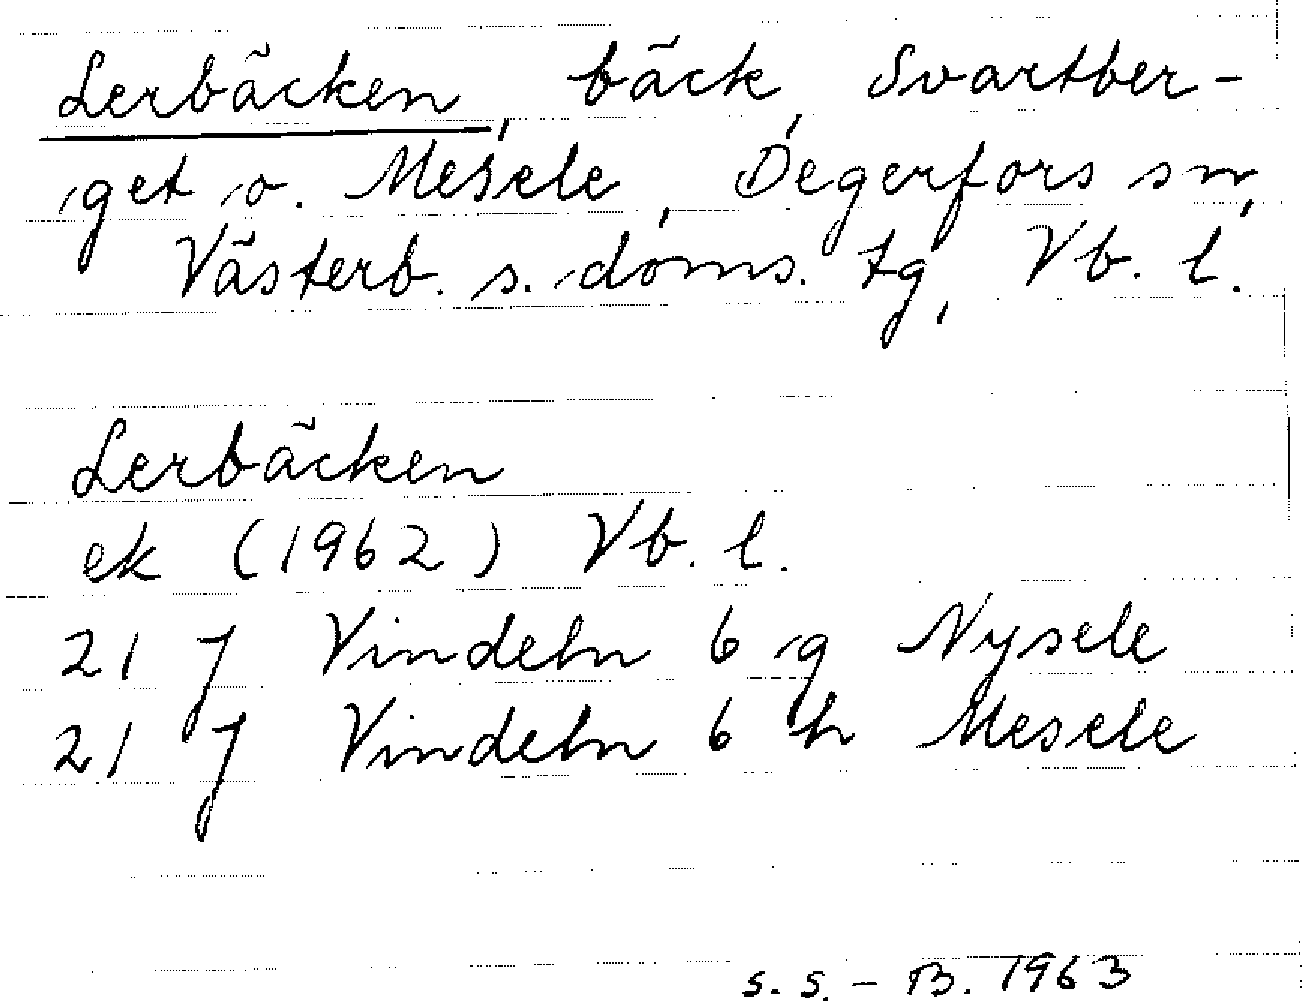 Lerbäcken, bäck, Svartber-
get o. Mesele, Degerfors sn,
Västerb. s. doms. tg, Vb. l.
Lerbäcken
ek (1962) Vb. l.
21 J Vindeln 6 g Nysele
21 J Vindeln 6 h Mesele
S. S. - B. 1963